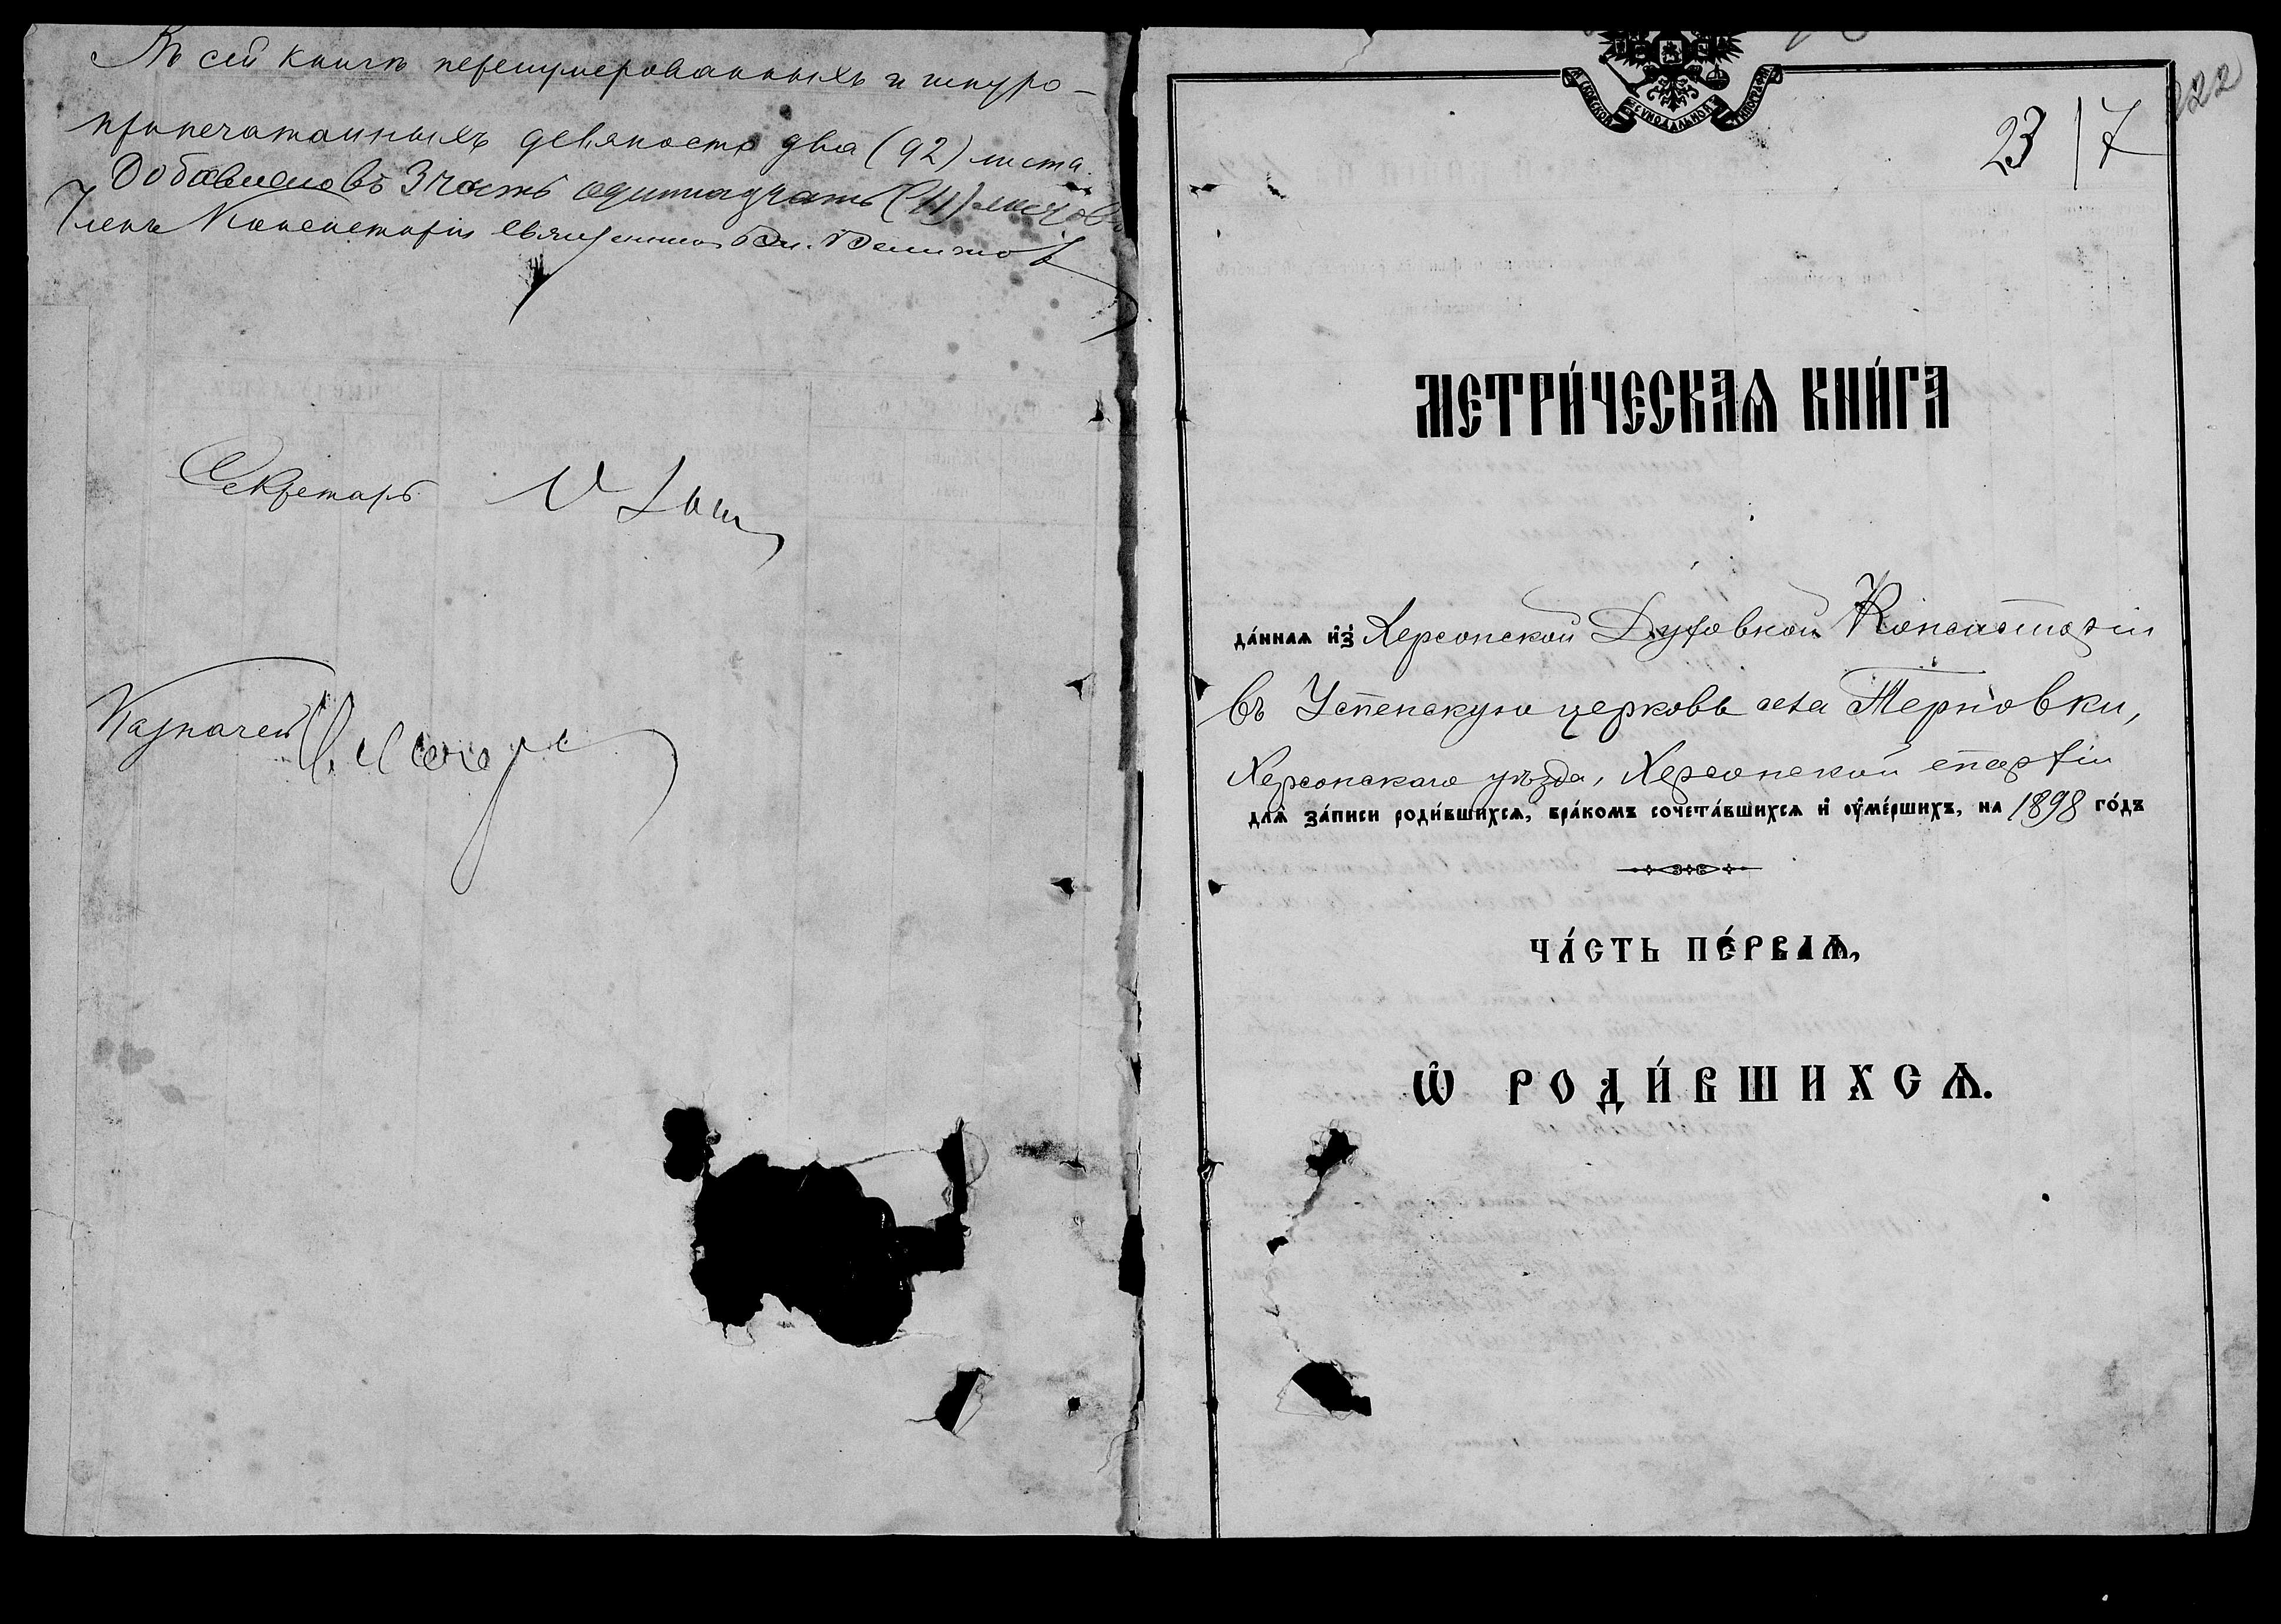 Въ сей книгѣ перенумерованныхъ и шнуро-
припечатанныхъ девяносто два (92) листа.
Добавлено въ 3 часть одиннадцать (11) листовъ
Членъ Консисторіи священникъ
Секретарь
Казначей
МОСКОВСКОЙ СѴНОДАЛЬНОЙ ТИПОГРАФІИ
222
23 / 7
МЕТРИ́ЧЕСКАѦ КНИ́ГА
да́ннаѧ и҆з̾ Херсонской Духовной Консисторіи
въ Успенскую церковь села Терновки,
Херсонскаго уѣзда, Херсонской епархіи
длѧ̀ за́писи роди́вшихсѧ, бра́комъ сочета́вшихсѧ и҆ ᲂу҆ме́ршихъ, на 1898 го́дъ
ЧА́СТЬ ПЕ́РВАѦ,
Ѽ РОДИ́ВШИХСѦ.